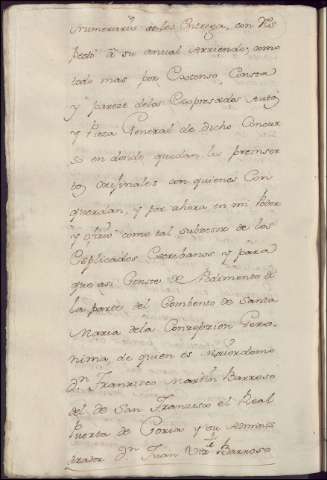 numerarios de los Entrega, con Res
pecto a su anual Arriendo, como
todo mas por Estenso, Consta
y parece de los Expresados Autos
y Pieza General de dicho Concur
so en donde quedan los preinser
tos originales con quienes Con
querdan, y por ahora en mi Poder
y oficio como tal subcesor de los
Esplicados Escribanos y para
que asi Conste de Pedimento de
la parte del Combento de Santa
Maria de la Concepcion Gero
nima, de quien es Maiordomo
Dn. Francisco Martin Barroso
del de San Francisco el Real
Puerta de Coria y su Adminis
trador Dn. Juan Barroso